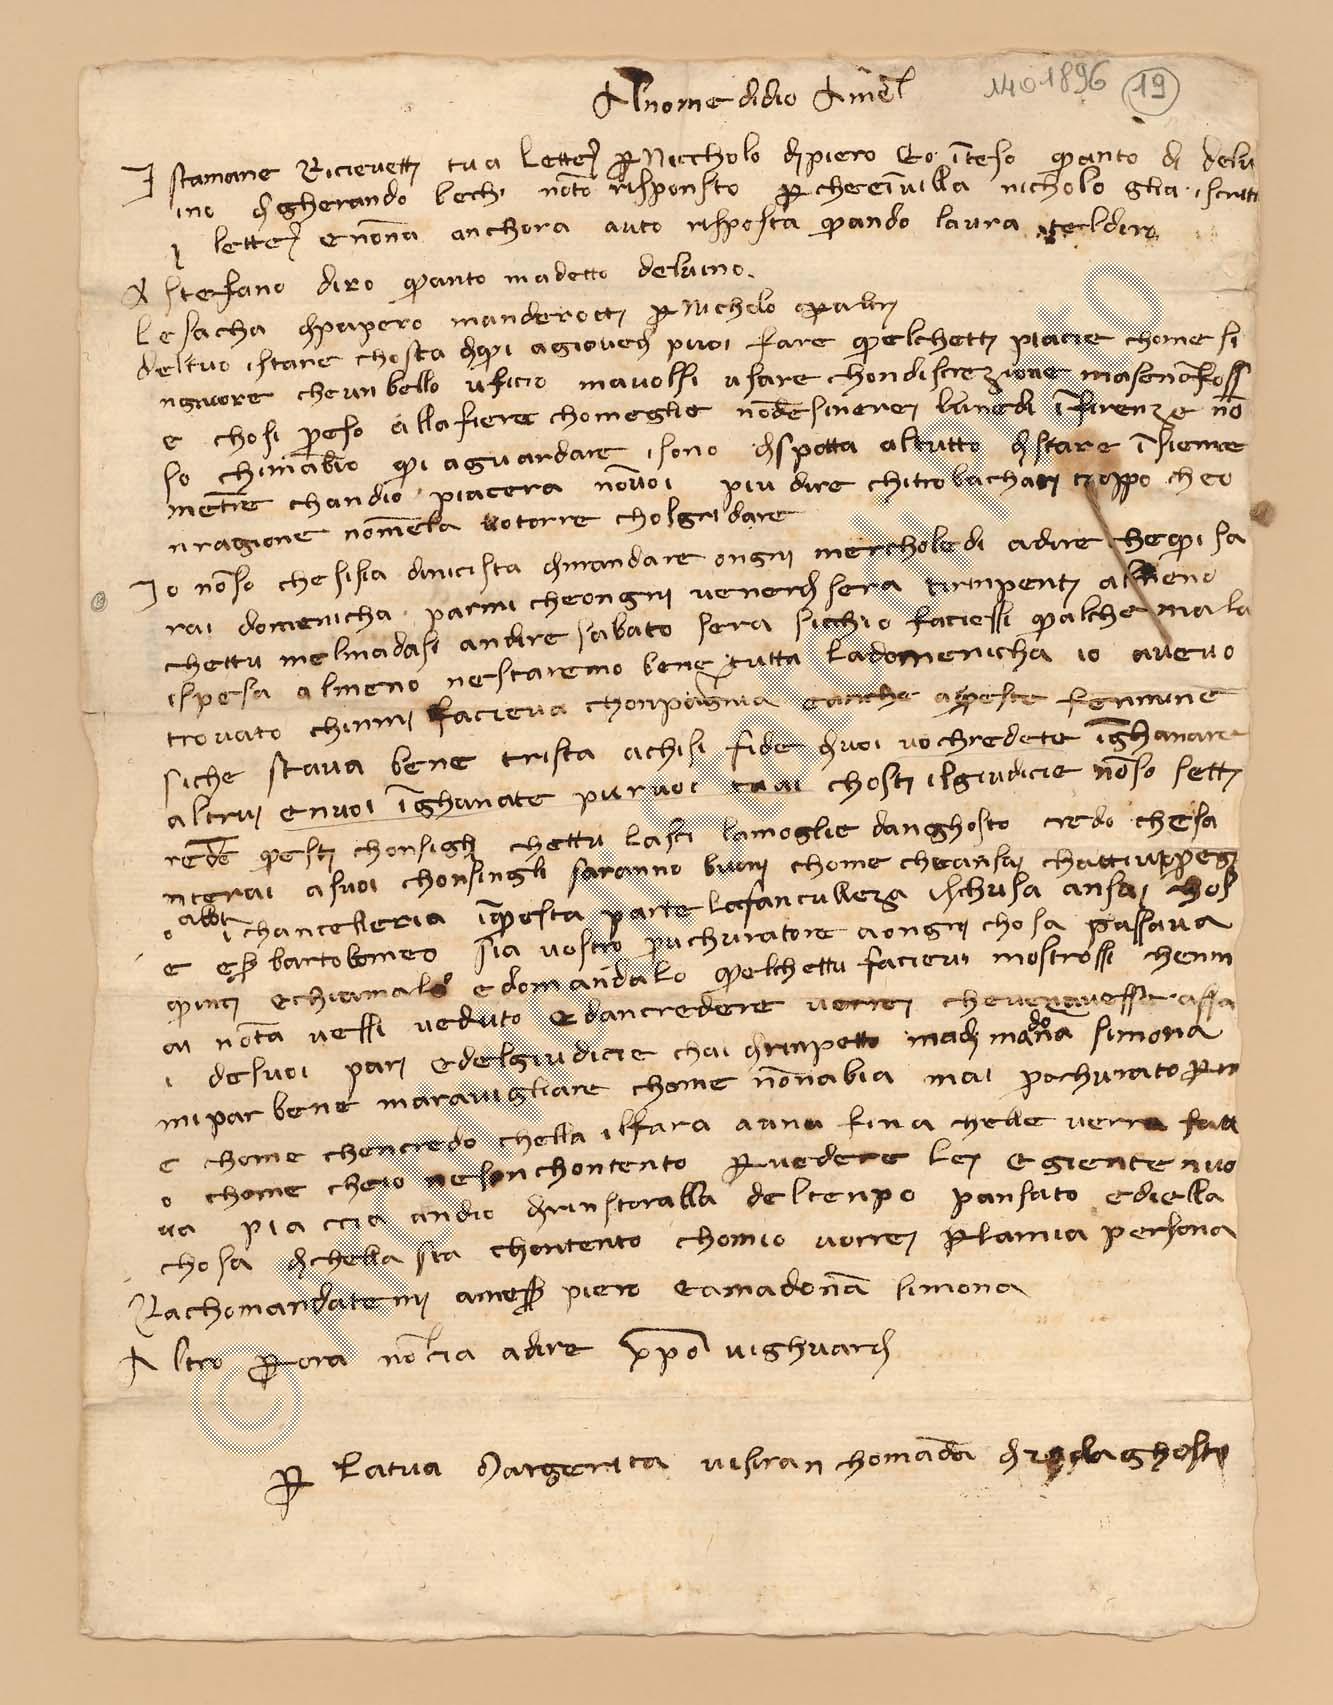 Al nome di dio Amen
1401896 19
Istamane Ricievetti tua lettera per Niccholo di piero Eo inteso quanto di delu
ino di gherando lechi noto risposto per che e in villa nicholo glia iscritto
1 lettera e nonna anchora auto risposta quando laura teldiro
A Stefano diro quanto ma detto deluino
Le sacha di papero manderotti per Nicholo o per altri
del tuo istare chosta di qui a giovedi puoi fare quelchetti piacie chome si
ngniore che un bello uficio ma volsi usare chon discrezione ma se non foss
e chosi preso alla fiera chomeglie non desinerei lunedi in firenze no
so chi m abio qui a guardare isono disposta al tutto di stare insieme
mentre chandio piacera non voi piu dire chitrobachati troppo cheo
ragione nommela torre chol gridare
Io non so che si sia dinicista di mandare ongni merchole di a dire che qui sa
rai domenicha parmi che ongni venerdi sera ti ripenti almeno
chettu mel mandasi a dire sabato sera sicchio faciessi qualche mala
ispesa almeno ne staremo bene tutta la domenicha io avevo
trovato chi mi facieva chonpagnia e anche a queste femmine
siche stava bene trista a chi si fide di voi vo chredete inghanare
altrui e nvoi inghanate pur voi tu ai chosti il giudicie non so setti
rende questi chonsigli chettu lasci la moglie danghosto credo chesa
nterai a suoi chonsingli saranno buoni chome che
o i chancelleria in questa parte la fanciullezza ischusa
e ser bartolomeo sia vostro prochuratore a ongni chosa passava
quinci e chiamalo e domandalo quelchettu facievi mostrossi henm
ai non ta vessi veduto e dancredere verrei
i de suoi pari e del giudicie chai di rinpetto ma di madonna simona
mi par bene maravigliare chome non nabia mai prochurato per m
e chome chencredo chella il fara anna fina chelle verra fatt
o chome cheio ne son chontento per vedere lei e giente nuo
va piaccia a ndio di ristoralla del tenpo pansato e di ella
chosa di chella sia chontento chom io vorrei per la mia persona
Rachomandatemi a messer piero e a madonna simona
Altro per ora non cia a dire Christo vi ghuardi
per la tua Margerita vi si rachomanda di 20 daghosto